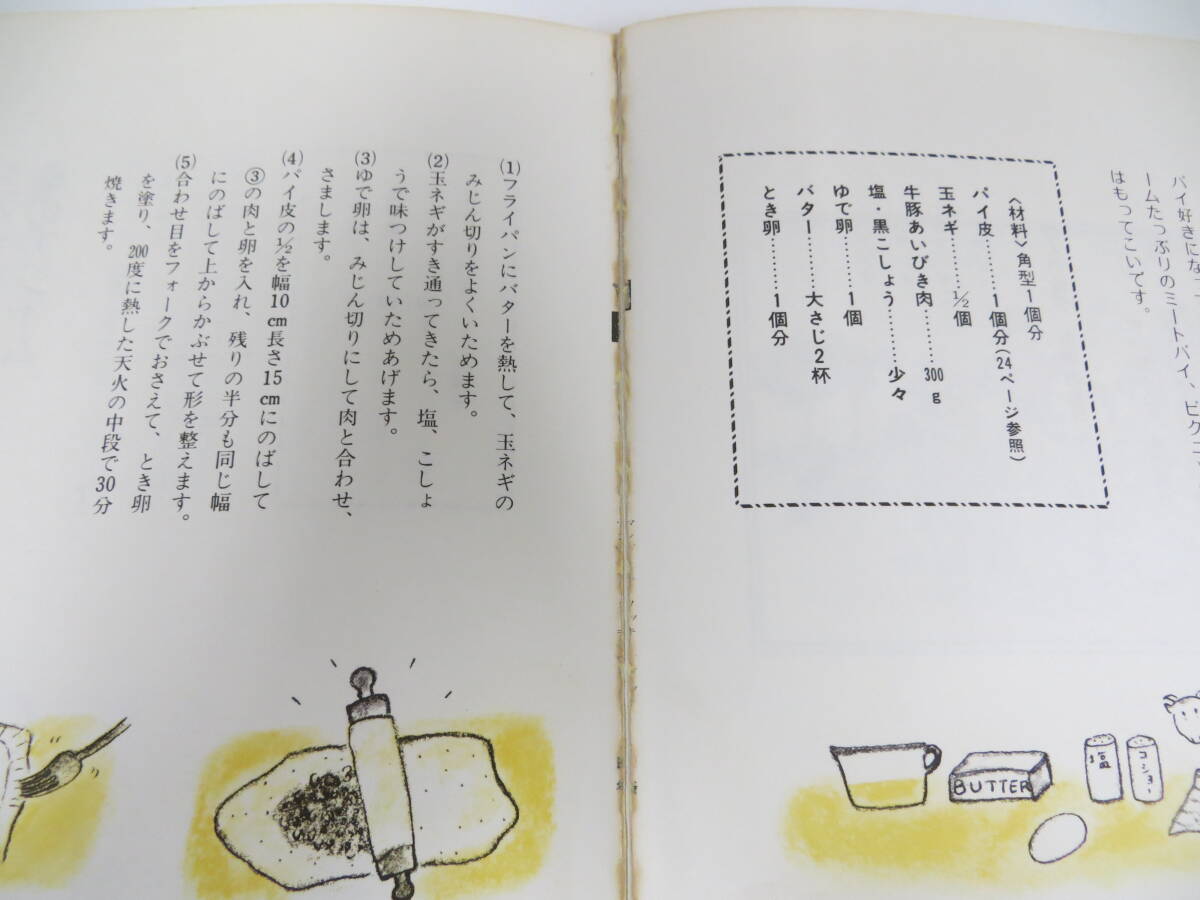 パイ好きになっ
ームたっぷりのミートパイ、ピクニッ
はもってこいです。
〈材料〉角型1個分
パイ皮………1個分(24ページ参照)
玉ネギ………½個
牛豚あいびき肉………300g
塩・黒こしょう………少々
ゆで卵………1個
バター………大さじ2杯
とき卵………1個分
BUTTER
塩
コショー
(1)フライパンにバターを熱して、玉ネギの
みじん切りをよくいためます。
(2)玉ネギがすき通ってきたら、塩、こしょ
うで味つけしていためあげます。
(3)ゆで卵は、みじん切りにして肉と合わせ、
さまします。
(4)パイ皮の½を幅10cm長さ15cmにのばして
③の肉と卵を入れ、残りの半分も同じ幅
にのばして上からかぶせて形を整えます。
(5)合わせ目をフォークでおさえて、とき卵
を塗り、200度に熱した天火の中段で30分
焼きます。